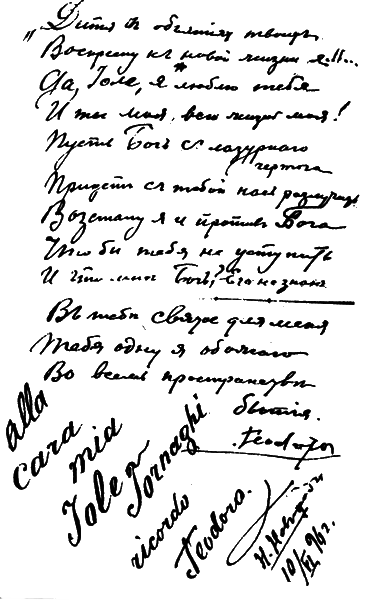 „Дитя въ объятiяхъ твоихъ
Воскресну къ новой жизни я!!..
Да, Iоле, я люблю тебя
И ты моя, вся жизнь моя!
Пусть Богъ съ лазурнаго
чертога
Придетъ съ тобой насъ разлучить
Возстану я и противъ Бога
Что бы тебя не уступить
И что мнѣ Богъ? Его не знаю
Въ тебѣ святое для меня
Тебя одну я обожаю
Во всемъ пространствѣ
бытiя.
Теодоръ
alla
cara
mia
Iole
Tornaghi
ricordo
Teodoro.
Н. Новгородъ
10/VI 96 г.